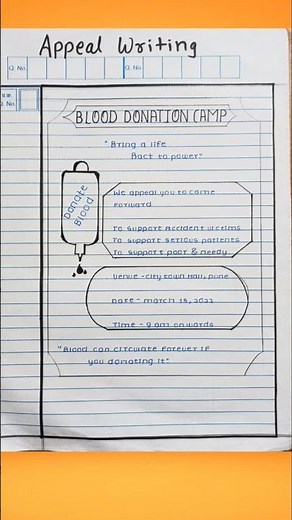 Appeal Writing
Q. No.
Q. No.
Q. No.
BLOOD DONATION CAMP
"Bring a life
Back to power"
Donate
Blood
We appeal you to came
forward
To support Accident victims
To support serious patients
To support poor & needy
Venue - City town Hall, Pune
Date - march 15, 2022
Time - 9 am onwards
"Blood can circulate forever if
you donating it"